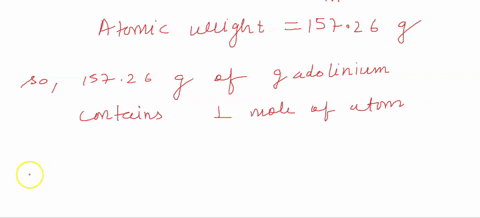 Atomic weight = 157.26 g
so, 157.26 g of gadolinium
contains 1 mole of atom